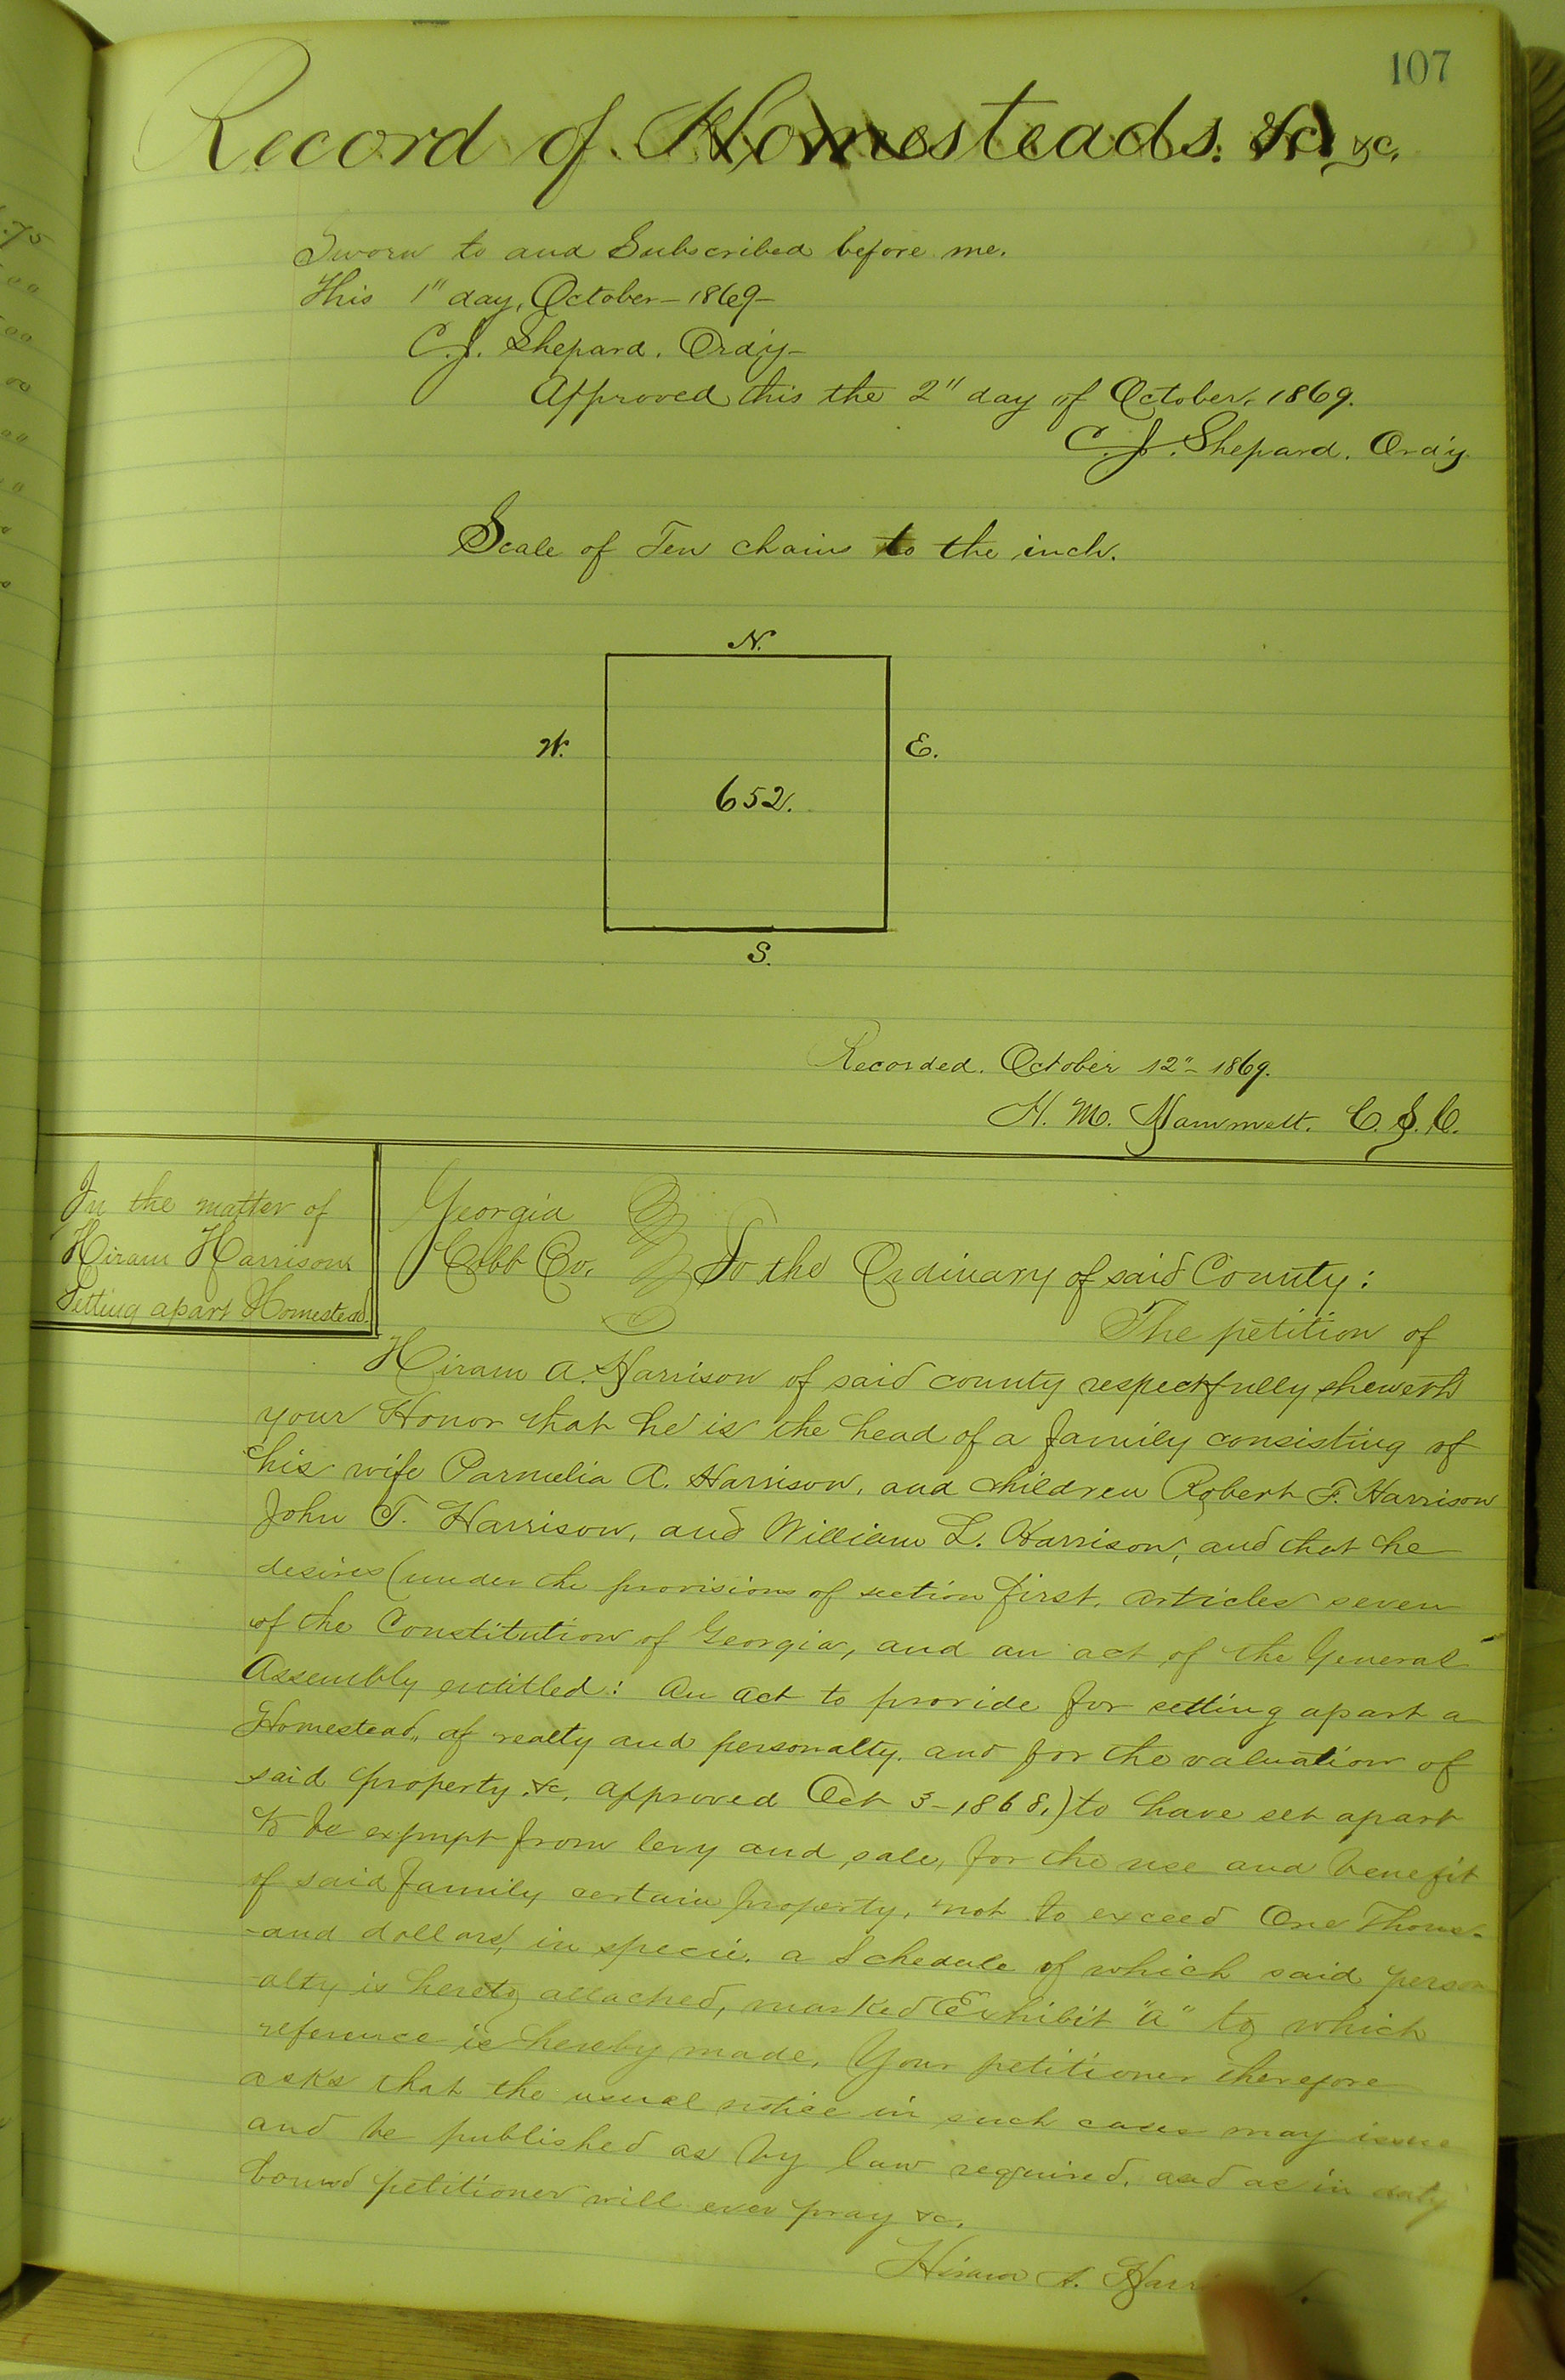 107
Record of Homesteads. &c &c.
Sworn to and Subscribed before me.
This 1" day, October - 1869 -
C. J. Shepard. Ord'y -
Approved this the 2" day of October, 1869.
C. J. Shepard. Ord'y
Scale of Ten chains to the inch.
N.
W.
E.
652.
S.
Recorded. October 12" - 1869.
H. M. Hammett. C. S. C.
In the matter of
Hiram Harrison
Setting apart Homestead.
Georgia
Cobb Co. To the Ordinary of said County:
The petition of
Hiram A. Harrison of said county respectfully sheweth
your Honor that he is the head of a family consisting of
his wife Parmelia A. Harrison, and children Robert F. Harrison
John T. Harrison, and William L. Harrison, and that he
desires (under the provisions of section first, articles seven
of the Constitution of Georgia, and an act of the General
Assembly entitled: An Act to provide for setting apart a
Homestead, of realty and personalty. and for the valuation of
said property &c. approved Oct 3 - 1868.) to have set apart
to be exempt from levy and sale, for the use and benefit
of said family certain property, not to exceed One Thous-
-and dollars, in specie. a Schedule of which said person
alty is hereto attached, marked Exhibit "A" to which
reference is hereby made. Your petitioner therefore
asks that the usual notice in such cases may issue
and be published as by law required. and as in duty
bound petitioner will ever pray &c.
Hiram A.